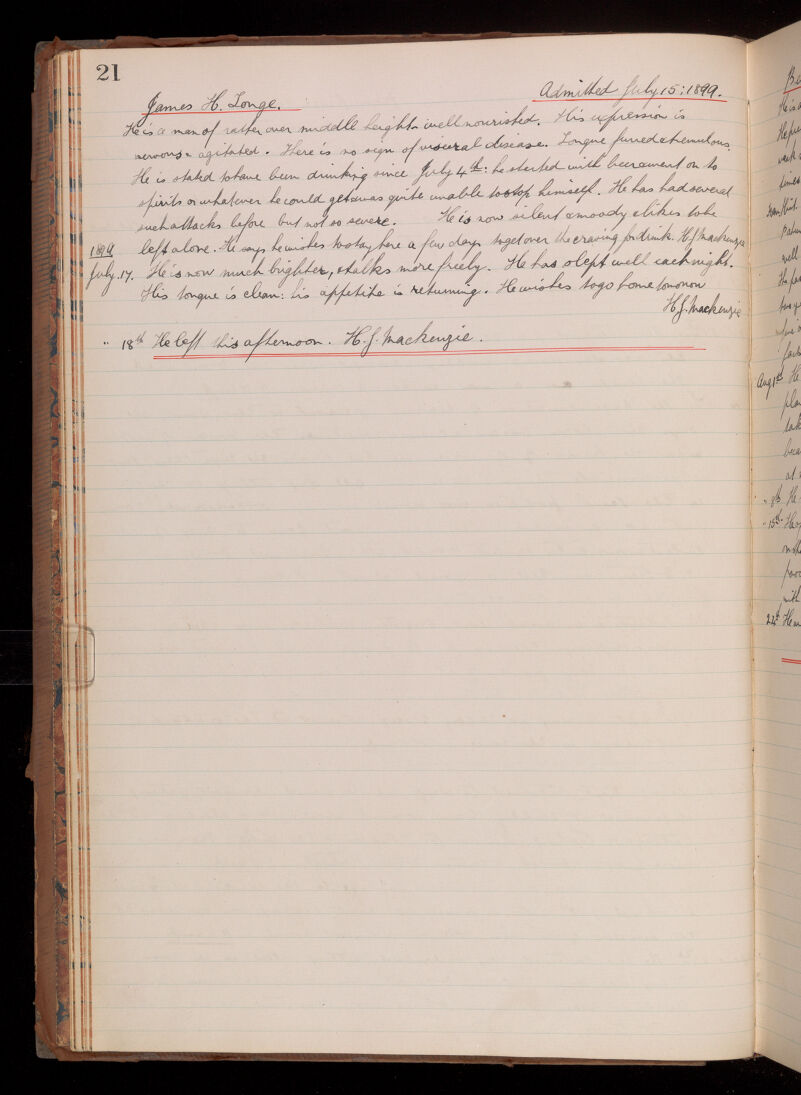 21
James H. Longe. Admitted July 15: 1899.
He is a man of rather over middle height & well nourished. His expression is
nervous & agitated. There is no sign of visceral disease. Tongue furred & tremulous.
He is stated to have been drinking since July 4th: he started with beer & went on to
spirits or whatever he could get & was quite unable to stop himself. He has had several
such attacks before but not so severe. He is now silent & moody & likes to be
left alone. He says he wishes to stay here a few days to get over the craving for drink. H.J. Mackenzie
1899
July. 17. He is now much brighter, & talks more freely. He has slept well each night.
His tongue is clean: his appetite is returning. He wishes to go home tomorrow
H.J. Mackenzie
" 18th He left this afternoon. H.J. Mackenzie.
Aug 1st He
" 8th He
" 15th He